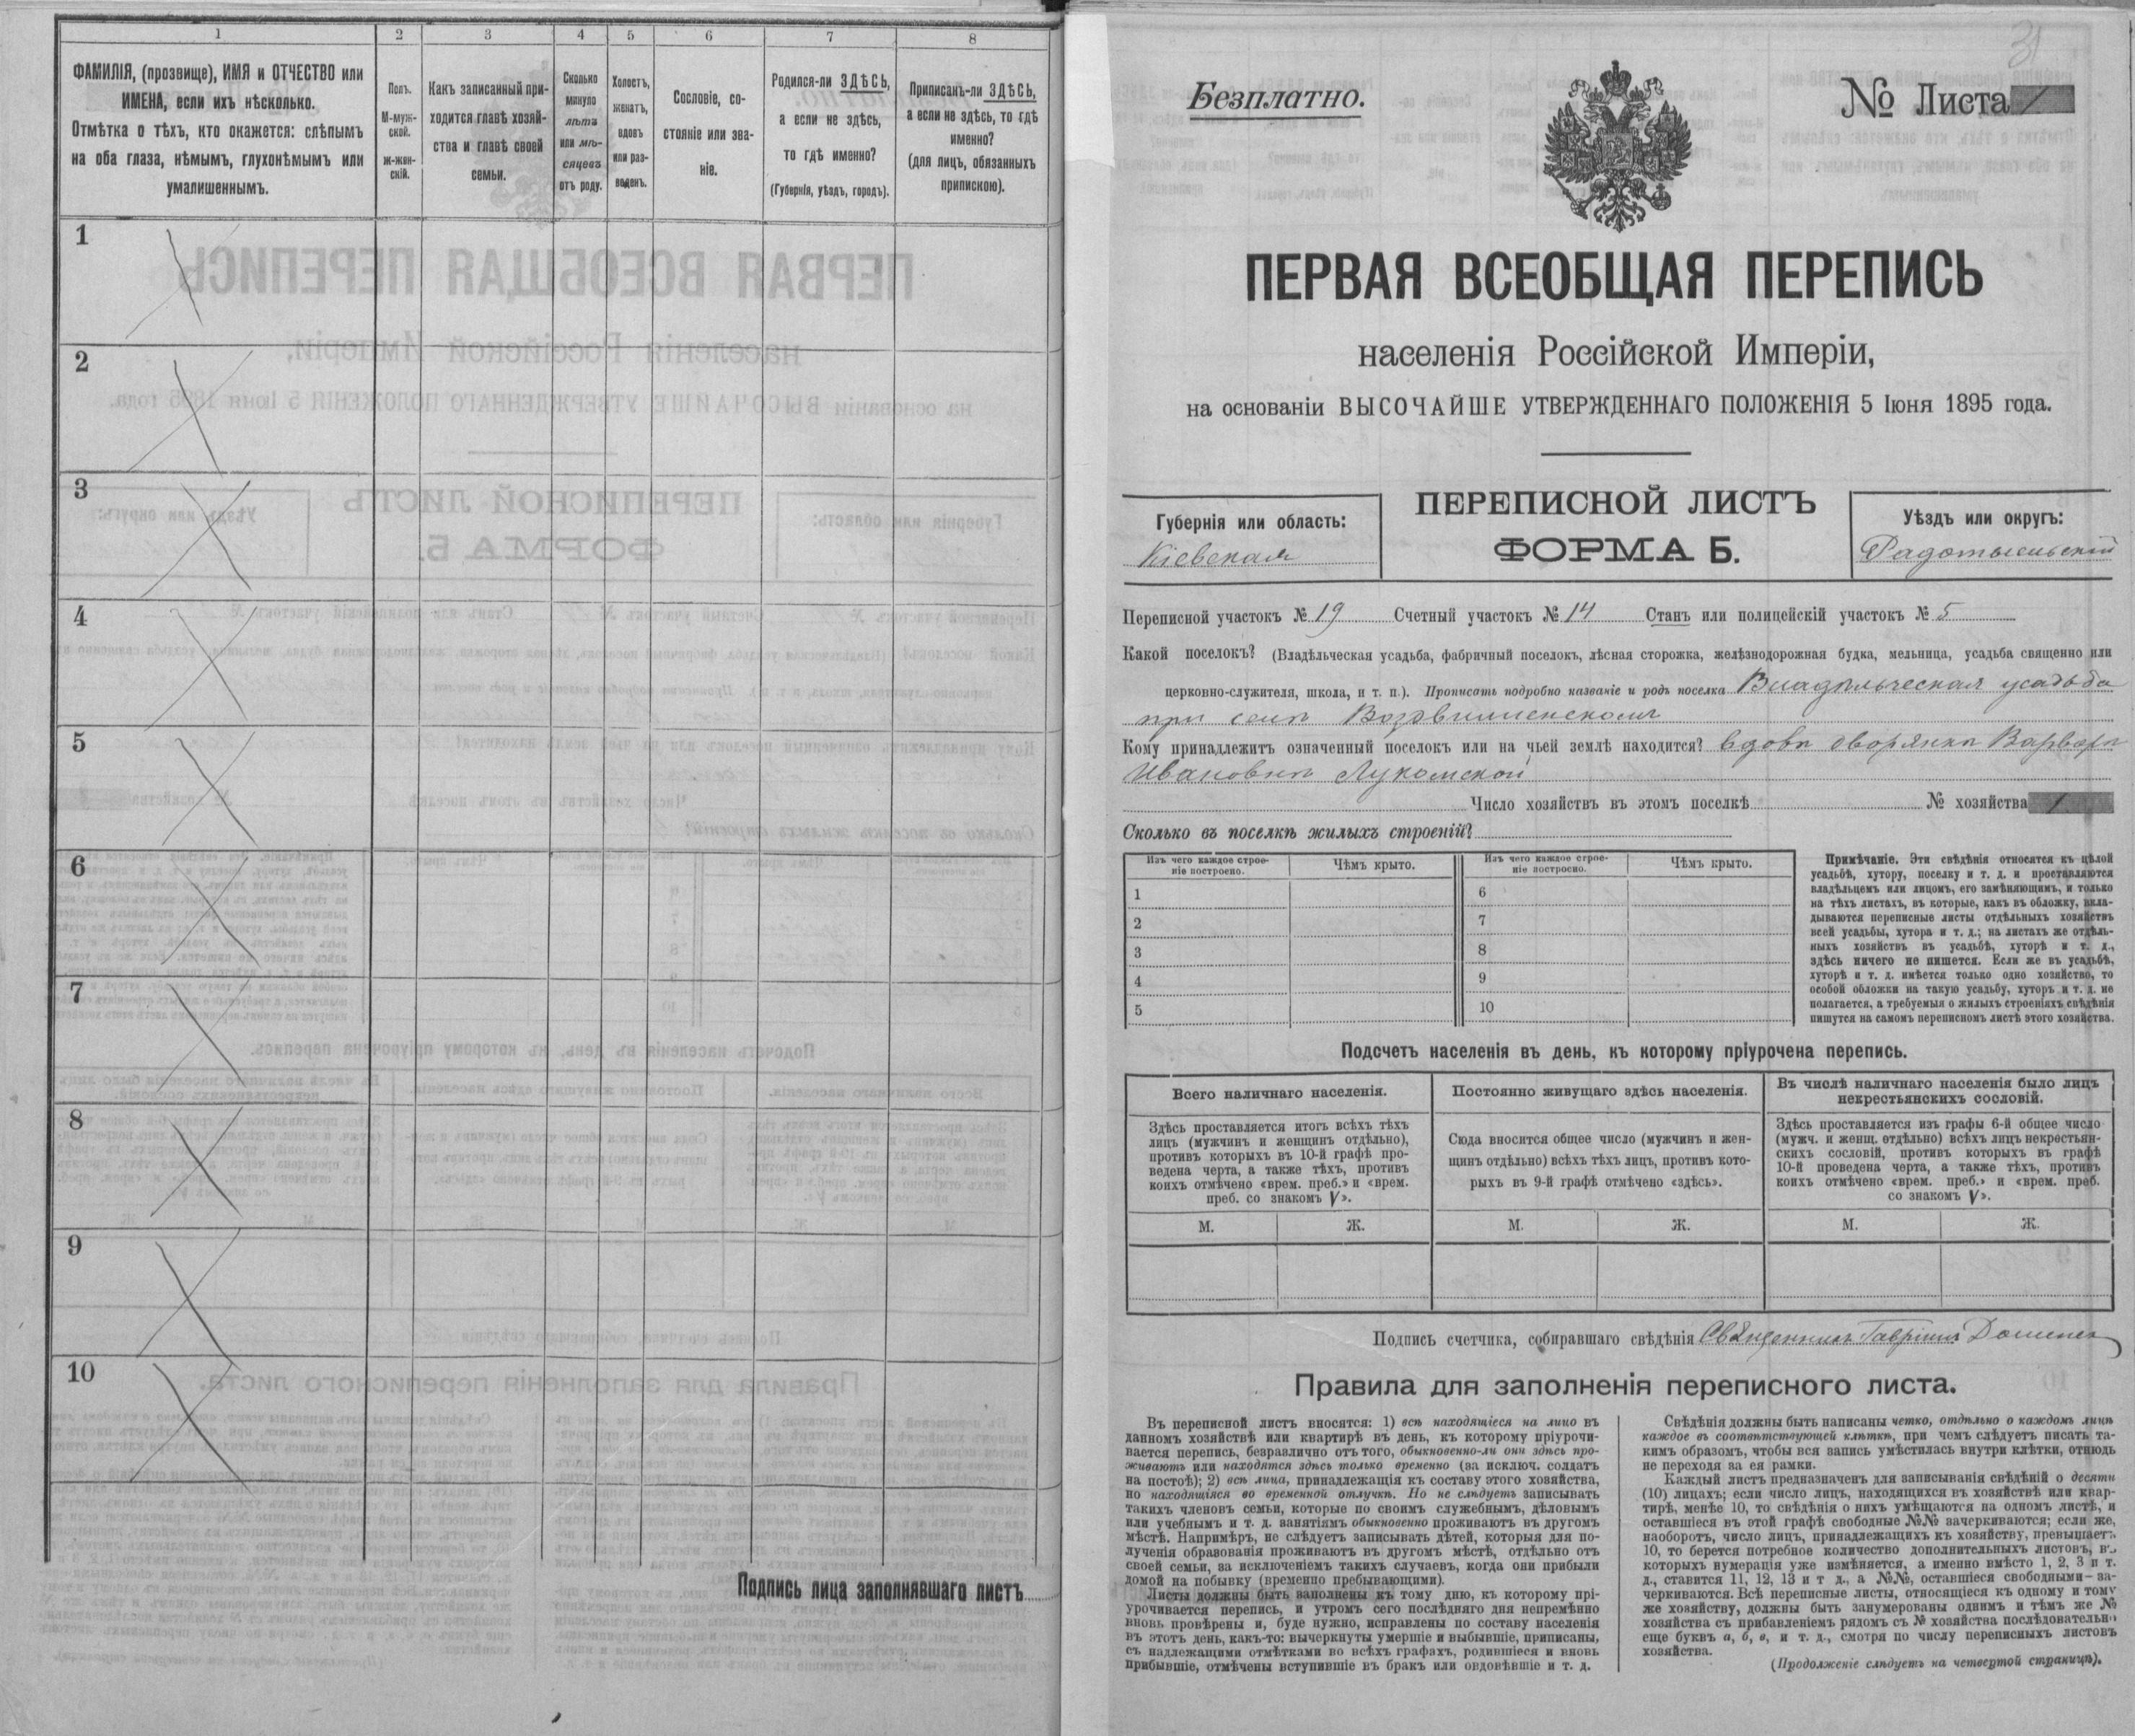 1 2 3 4 5 6 7 8
ФАМИЛІЯ, (прозвище), ИМЯ и ОТЧЕСТВО или
ИМЕНА, если ихъ нѣсколько.
Отмѣтка о тѣхъ, кто окажется: слѣпымъ
на оба глаза, нѣмымъ, глухонѣмымъ или
умалишеннымъ.
Полъ.
М-муж-
ской.
ж-жен-
скій.
Какъ записанный при-
ходится главѣ хозяй-
ства и главѣ своей
семьи.
Сколько
минуло
лѣтъ
или мѣ-
сяцевъ
отъ роду.
Холостъ,
женатъ,
вдовъ
или раз-
веденъ.
Сословіе, со-
стояніе или зва-
ніе.
Родился-ли ЗДѢСЬ,
а если не здѣсь,
то гдѣ именно?
(Губернія, уѣздъ, городъ).
Приписанъ-ли ЗДѢСЬ,
а если не здѣсь, то гдѣ
именно?
(для лицъ, обязанныхъ
припискою).
1
2
3
4
5
6
7
8
9
10
Подпись лица заполнявшаго листъ
31
Безплатно.
№ Листа 1
ПЕРВАЯ ВСЕОБЩАЯ ПЕРЕПИСЬ
населенія Россійской Имперіи,
на основаніи ВЫСОЧАЙШЕ УТВЕРЖДЕННАГО ПОЛОЖЕНІЯ 5 Іюня 1895 года.
Губернія или область:
Кіевская
ПЕРЕПИСНОЙ ЛИСТЪ
ФОРМА Б.
Уѣздъ или округъ:
Радомысльскій
Переписной участокъ № 19 Счетный участокъ № 14 Станъ или полицейскій участокъ № 5
Какой поселокъ? (Владѣльческая усадьба, фабричный поселокъ, лѣсная сторожка, желѣзнодорожная будка, мельница, усадьба священно или
церковно-служителя, школа, и т. п.). Прописать подробно названіе и родъ поселка Владѣльческая усадьба
при селѣ Воздвиженскомъ
Кому принадлежитъ означенный поселокъ или на чьей землѣ находится? вдовѣ дворянкѣ Варварѣ
Ивановнѣ Лукомской
Число хозяйствъ въ этомъ поселкѣ № хозяйства 1
Сколько въ поселкѣ жилыхъ строеній?
Изъ чего каждое строе-
ніе построено.
Чѣмъ крыто.
Изъ чего каждое строе-
ніе построено.
Чѣмъ крыто.
1 6
2 7
3 8
4 9
5 10
Примѣчаніе. Эти свѣдѣнія относятся къ цѣлой
усадьбѣ, хутору, поселку и т. д. и проставляются
владѣльцемъ или лицомъ, его замѣняющимъ, и только
на тѣхъ листахъ, въ которые, какъ въ обложку, вкла-
дываются переписные листы отдѣльныхъ хозяйствъ
всей усадьбы, хутора и т. д.; на листахъ же отдѣль-
ныхъ хозяйствъ въ усадьбѣ, хуторѣ и т. д.,
здѣсь ничего не пишется. Если же въ усадьбѣ,
хуторѣ и т. д. имѣется только одно хозяйство, то
особой обложки на такую усадьбу, хуторъ и т. д. не
полагается, а требуемыя о жилыхъ строеніяхъ свѣдѣнія
пишутся на самомъ переписномъ листѣ этого хозяйства.
Подсчетъ населенія въ день, къ которому пріурочена перепись.
Всего наличнаго населенія.
Здѣсь проставляется итогъ всѣхъ тѣхъ
лицъ (мужчинъ и женщинъ отдѣльно),
противъ которыхъ въ 10-й графѣ про-
ведена черта, а также тѣхъ, противъ
коихъ отмѣчено «врем. преб.» и «врем.
преб. со знакомъ V».
М. Ж.
Постоянно живущаго здѣсь населенія.
Сюда вносится общее число (мужчинъ и жен-
щинъ отдѣльно) всѣхъ тѣхъ лицъ, противъ кото-
рыхъ въ 9-й графѣ отмѣчено «здѣсь».
М. Ж.
Въ числѣ наличнаго населенія было лицъ
некрестьянскихъ сословій.
Здѣсь проставляется изъ графы 6-й общее число
(мужч. и женщ. отдѣльно) всѣхъ лицъ некрестьян-
скихъ сословій, противъ которыхъ въ графѣ
10-й проведена черта, а также тѣхъ, противъ
коихъ отмѣчено «врем. преб.» и «врем. преб.
со знакомъ V».
М. Ж.
Подпись счетчика, собиравшаго свѣдѣнія Священникъ Гавріилъ
Правила для заполненія переписного листа.
Въ переписной листъ вносятся: 1) всѣ находящіеся на лицо въ
данномъ хозяйствѣ или квартирѣ въ день, къ которому пріурочи-
вается перепись, безразлично отъ того, обыкновенно-ли они здѣсь про-
живаютъ или находятся здѣсь только временно (за исключ. солдатъ
на постоѣ); 2) всѣ лица, принадлежащія къ составу этого хозяйства,
но находящіяся во временной отлучкѣ. Но не слѣдуетъ записывать
такихъ членовъ семьи, которые по своимъ служебнымъ, дѣловымъ
или учебнымъ и т. д. занятіямъ обыкновенно проживаютъ въ другомъ
мѣстѣ. Напримѣръ, не слѣдуетъ записывать дѣтей, которыя для по-
лученія образованія проживаютъ въ другомъ мѣстѣ, отдѣльно отъ
своей семьи, за исключеніемъ такихъ случаевъ, когда они прибыли
домой на побывку (временно пребывающими).
Листы должны быть заполнены къ тому дню, къ которому прі-
урочивается перепись, и утромъ сего послѣдняго дня непремѣнно
вновь провѣрены и, буде нужно, исправлены по составу населенія
въ этотъ день, какъ-то: вычеркнуты умершіе и выбывшіе, приписаны,
съ надлежащими отмѣтками во всѣхъ графахъ, родившіеся и вновь
прибывшіе, отмѣчены вступившіе въ бракъ или овдовѣвшіе и т. д.
Свѣдѣнія должны быть написаны четко, отдѣльно о каждомъ лицѣ
каждое въ соотвѣтствующей клѣткѣ, при чемъ слѣдуетъ писать та-
кимъ образомъ, чтобы вся запись умѣстилась внутри клѣтки, отнюдь
не переходя за ея рамки.
Каждый листъ предназначенъ для записыванія свѣдѣній о десяти
(10) лицахъ; если число лицъ, находящихся въ хозяйствѣ или квар-
тирѣ, менѣе 10, то свѣдѣнія о нихъ умѣщаются на одномъ листѣ, и
оставшіеся въ этой графѣ свободные №№ зачеркиваются; если же,
наоборотъ, число лицъ, принадлежащихъ къ хозяйству, превышаетъ
10, то берется потребное количество дополнительныхъ листовъ, въ
которыхъ нумерація уже измѣняется, а именно вмѣсто 1, 2, 3 и т.
д., ставится 11, 12, 13 и т д., а №№, оставшіеся свободными—за-
черкиваются. Всѣ переписные листы, относящіеся къ одному и тому
же хозяйству, должны быть занумерованы однимъ и тѣмъ же №
хозяйства съ прибавленіемъ рядомъ съ № хозяйства послѣдовательно
еще буквъ а, б, в, и т. д., смотря по числу переписныхъ листовъ
хозяйства.
(Продолженіе слѣдуетъ на четвертой страницѣ).